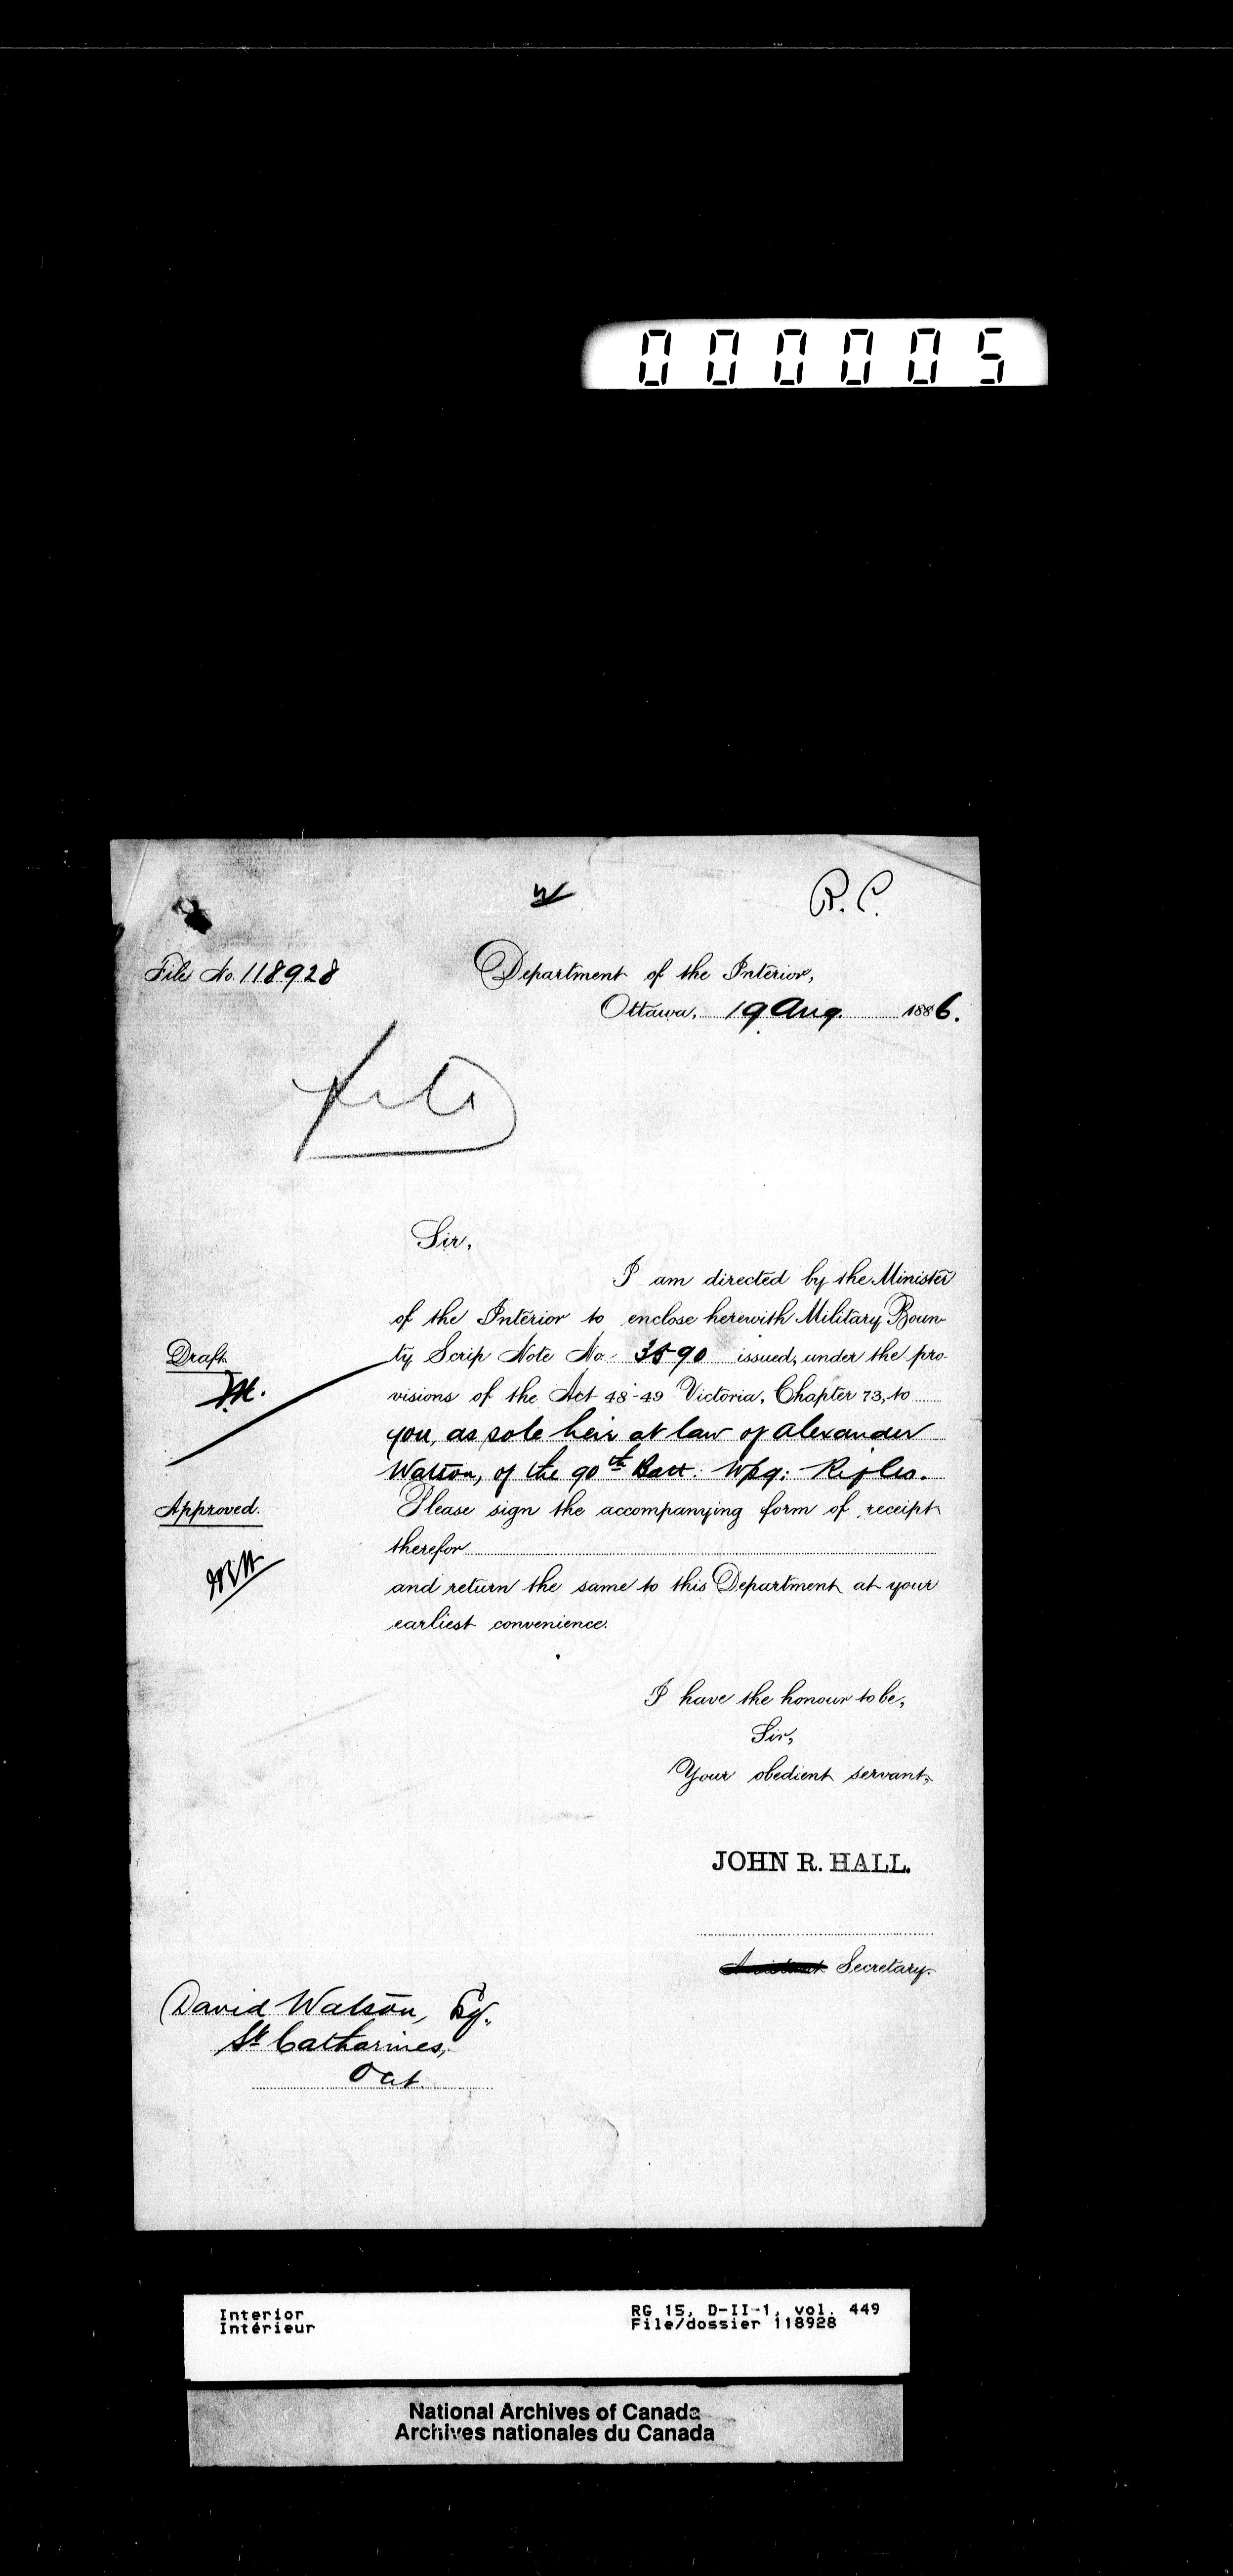 000005
R. C.
File No. 118928
Department of the Interior,
Ottawa, 19 Aug. 1886.
File
Sir,
I am directed by the Minister
of the Interior to enclose herewith Military Boun-
Draft
ty Scrip Note No. 3590 issued, under the pro-
visions of the Act 48-49 Victoria, Chapter 73, to
you, as sole heir at law of Alexander
Watson, of the 90th Batt: Wpg: Rifles.
Approved.
Please sign the accompanying form of receipt
therefor
and return the same to this Department at your
earliest convenience.
I have the honour to be,
Sir,
Your obedient servant,
JOHN R. HALL.
Assistant Secretary.
David Watson, Esq.
St Catharines,
Ont.
Interior
Intérieur
RG 15, D-II-1, vol. 449
File/dossier 118928
National Archives of Canada
Archives nationales du Canada